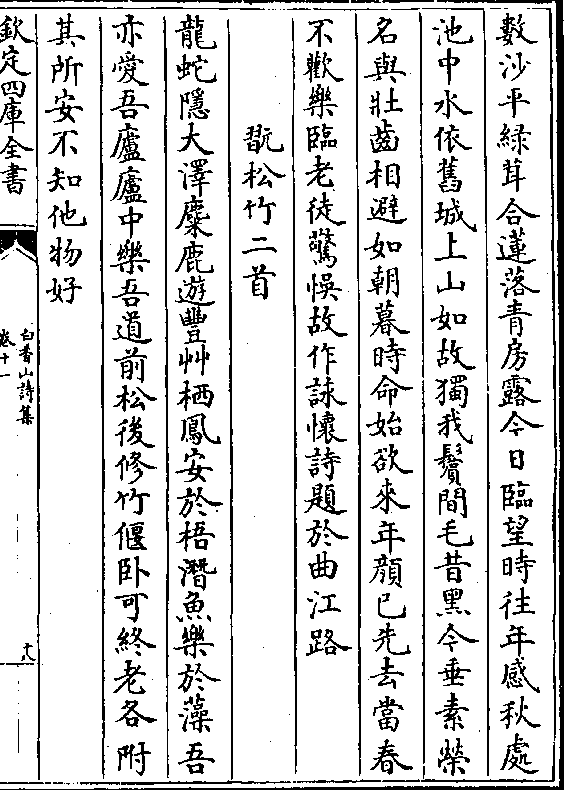 數沙平緑茸合蓮落青房露今日臨望時往年感秋處
池中水依舊城上山如故獨我鬢間毛昔黑今垂素榮
名與壯齒相避如朝暮時命始欲來年顔已先去當春
不歡樂臨老徒驚悞故作詠懷詩題於曲江路
翫松竹二首
龍蛇隱大澤麋鹿遊豐艸栖鳳安於梧潛魚樂於藻吾
亦愛吾廬廬中樂吾道前松後修竹偃卧可終老各附
其所安不知他物好
欽定四庫全書
白香山詩集
卷十一
十八